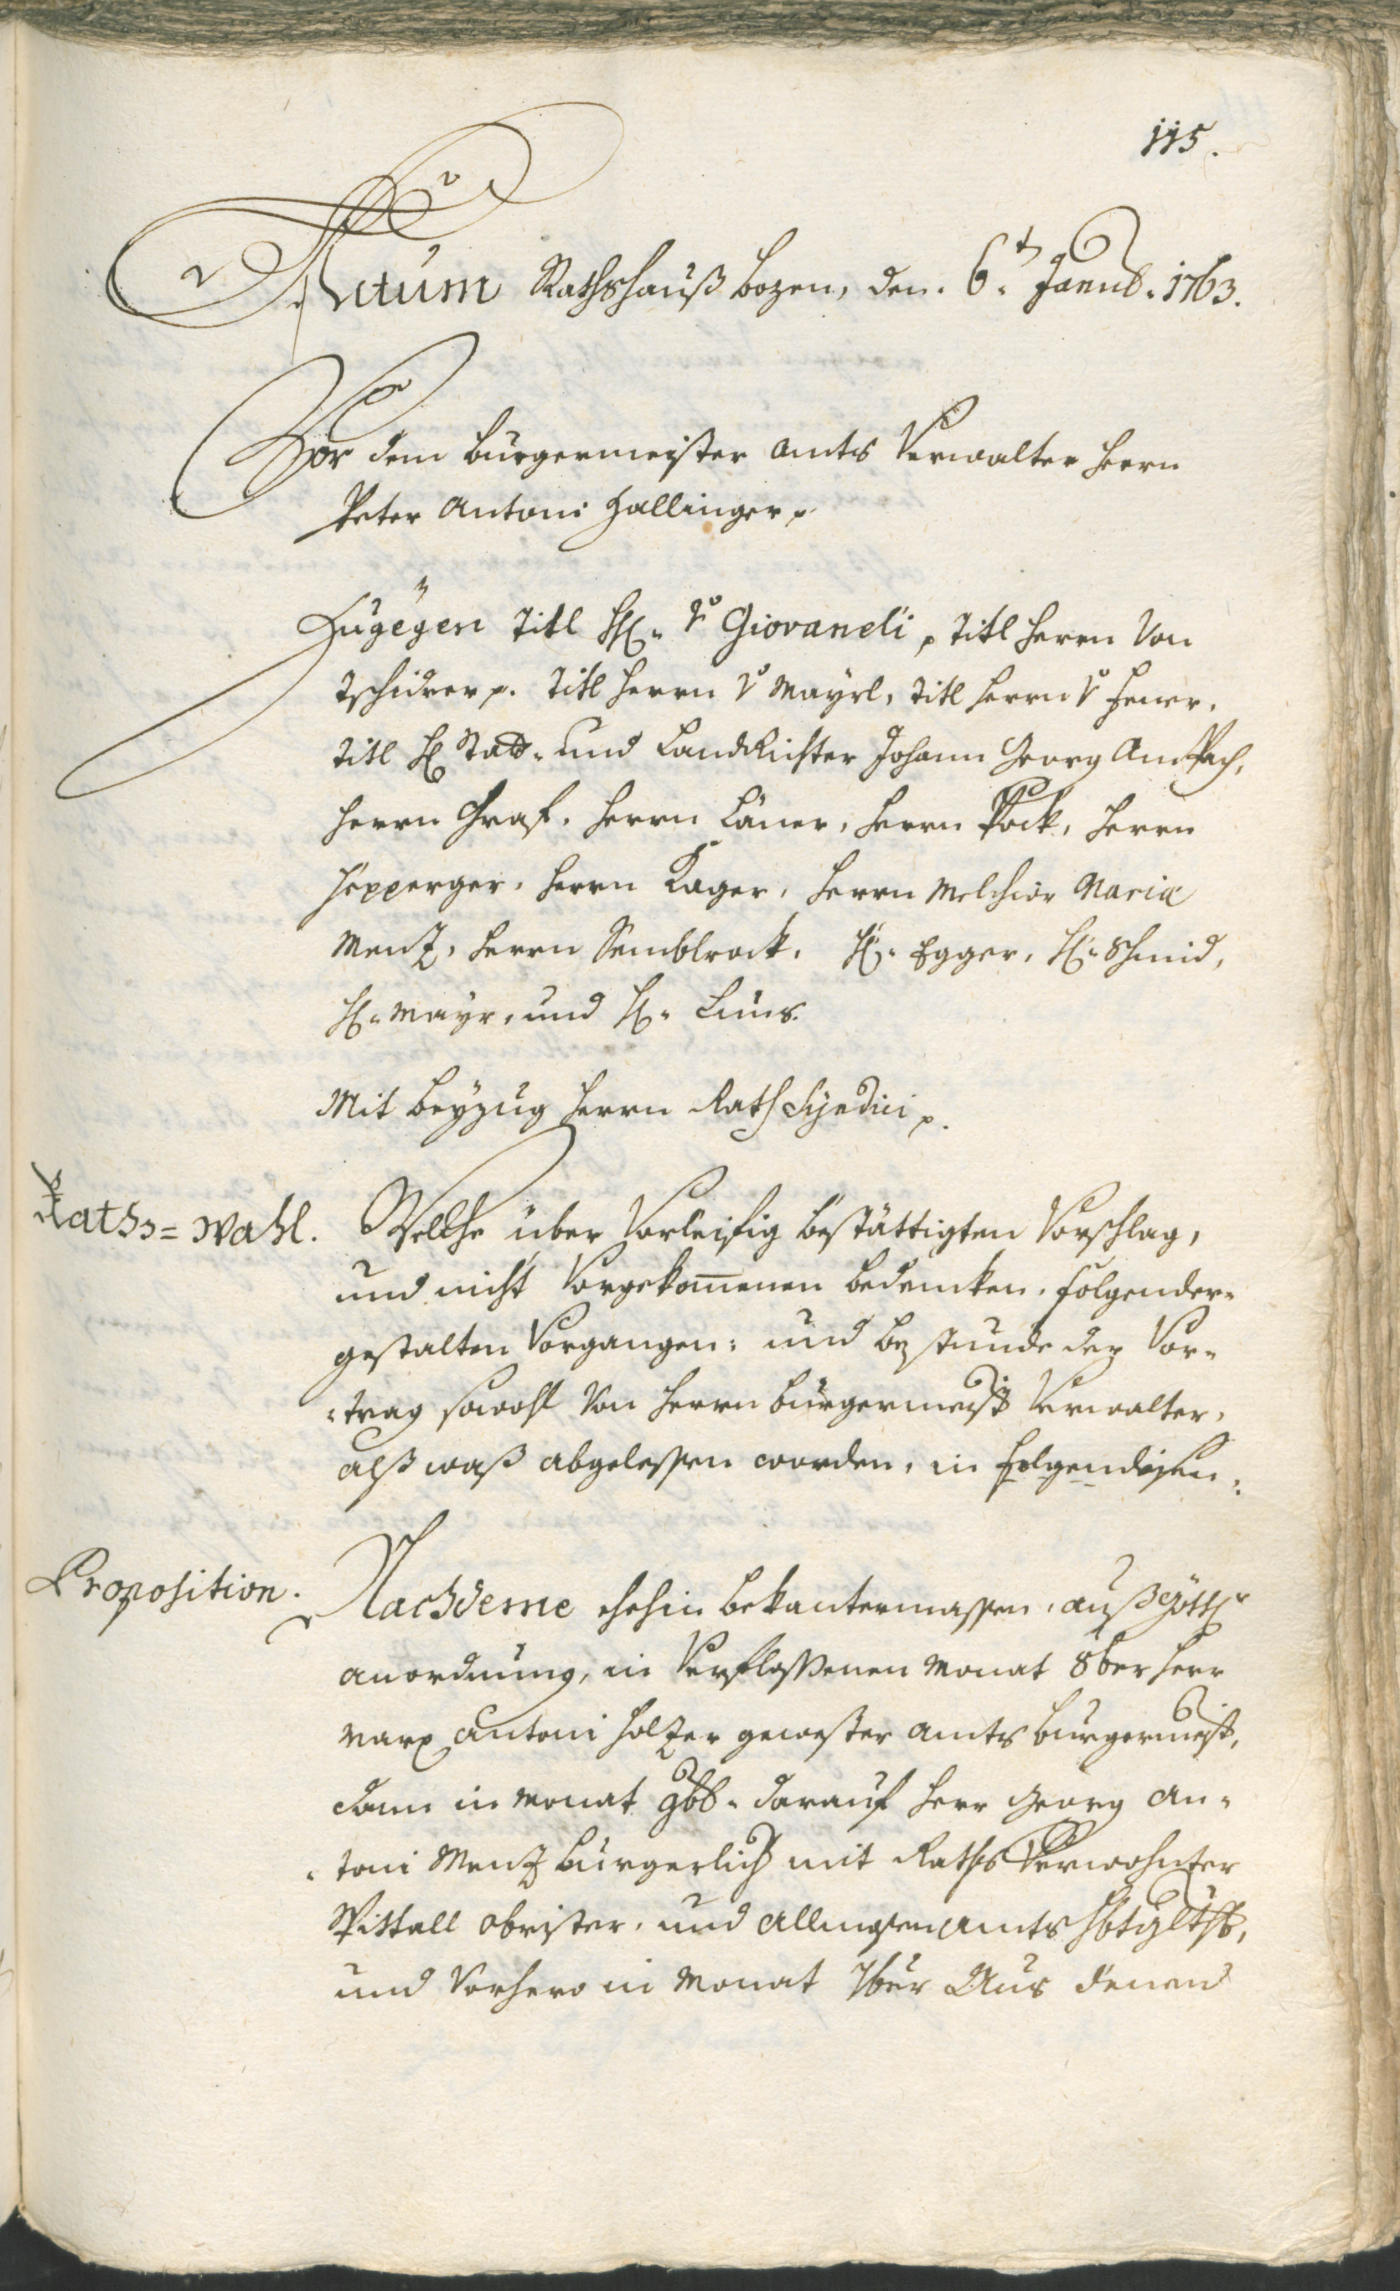 115.
Actum Rathshauß Bozen, den. 6t. Januar. 1763.
Vor dem Burgermeister Amts Verwalter Herrn
Peter Antoni Hallinger p.
Zugegen Titl H. v. Giovaneli, p Titl Herrn von
Tschidrer p. Titl Herrn v Mayrl, Titl Herrn v
Titl H Statt- und LandRichter Johann Georg
Herrn Graf. Herrn Läner, Herrn Pock, Herrn
Hepperger. Herrn Kager, Herrn Melchior Maria
Menz, Herrn Semblrock. H. Egger, H. Schmid,
H. Mayr, und H.
Mit Beyzug Herrn Rath Syndici p.
Raths=Wahl. Welche über Vorleifig bestättigten Vorschlag,
und nicht Vorgekommenen bedencken, folgender-
gestalten Vorgangen: und bestunde der Vor-
-trag sowohl von Herrn Burgermeister Verwalter,
alß waß abgelessen worden, in
Proposition. Nachdeme ehehin bekantermassen, auß göttl
anordnung, in Verflossenen Monat 8ber Herr
Marx Antoni Holzer gewester Amts Burgermeister,
dann in Monat 9b. darauf Herr Georg An-
-toni Menz Burgerlich mit Raths Verwohnter
Spittall obrister, und
und Vorhero in Monat 7ber Aus denen